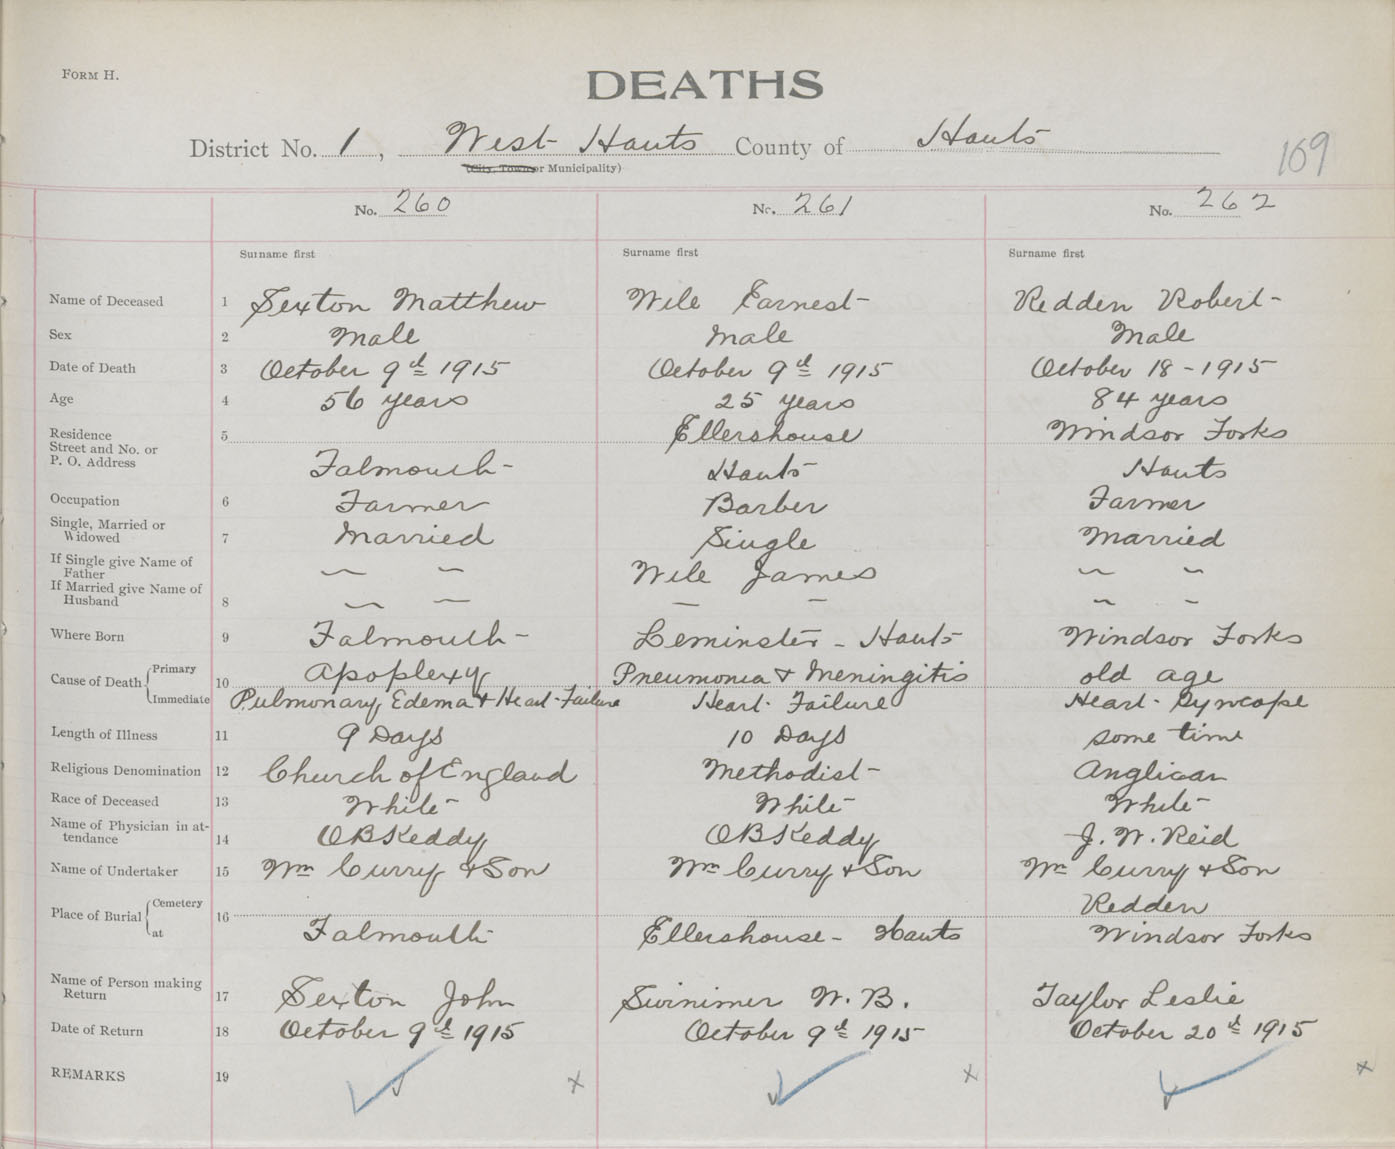 FORM H.
DEATHS
District No. 1, West Hants County of Hants
169
(City, Town or Municipality)
No. 260 No. 261 No. 262
Surname first Surname first Surname first
Name of Deceased 1 Sexton Matthew Wile Earnest Redden Robert
Sex 2 Male Male Male
Date of Death 3 October 9th 1915 October 9th 1915 October 18 - 1915
Age 4 56 years 25 years 84 years
Residence 5 Ellershouse Windsor Forks
Street and No. or
P. O. Address Falmouth Hants Hants
Occupation 6 Farmer Barber Farmer
Single, Married or
Widowed 7 Married Single Married
If Single give Name of
Father — — Wile James — —
If Married give Name of
Husband 8 — — — — — —
Where Born 9 Falmouth Leminster - Hants Windsor Forks
Cause of Death Primary 10 Apoplexy Pneumonia & Meningitis old age
Immediate Pulmonary Edema & Heart Failure Heart Failure Heart Syncope
Length of Illness 11 9 Days 10 Days some time
Religious Denomination 12 Church of England Methodist Anglican
Race of Deceased 13 White White White
Name of Physician in at-
tendance 14 OB Keddy OB Keddy J. W. Reid
Name of Undertaker 15 Wm Curry & Son Wm Curry & Son Wm Curry & Son
Place of Burial Cemetery 16 Redden
at Falmouth Ellershouse - Hants Windsor Forks
Name of Person making
Return 17 Sexton John Swinimer W. B. Taylor Leslie
Date of Return 18 October 9th 1915 October 9th 1915 October 20th 1915
REMARKS 19 ✓ x ✓ x ✓ x